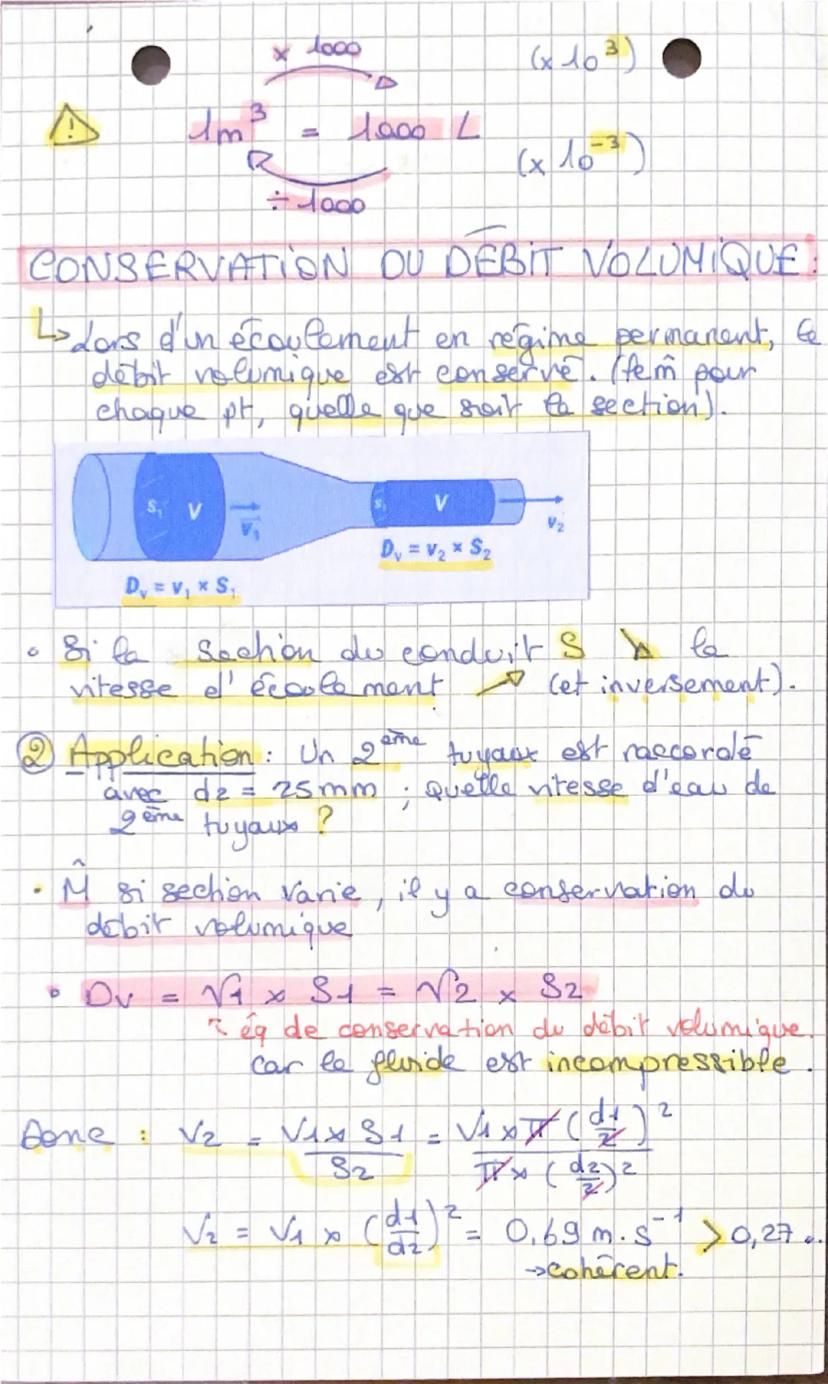 x 1000 (x 10³)
⚠ 1m³ = 1000 L
(x 10⁻³)
÷ 1000
CONSERVATION DU DÉBIT VOLUMIQUE :
↳ Lors d'un écoulement en régime permanent, le
débit volumique est conservé. (le m̂ pour
chaque pt, quelle que soit la section).
S₁ V v₁ S₂ V v₂
Dᵥ = v₂ × S₂
Dᵥ = v₁ × S₁
• Si la section du conduit S ↘ la
vitesse d'écoulement ↗ (et inversement).
② Application : Un 2ème tuyaux est raccordé
avec d2 = 25mm ; quelle vitesse d'eau de
2ème tuyaux ?
• M̂ si section varie, il y a conservation du
débit volumique
• Dv = V1 x S1 = V2 x S2
↖ éq de conservation du débit volumique.
car le fluide est incompressible.
Donc : V2 = (V1 x S1)/S2 = (V1 x π (d1/2)²)/(π x (d2/2)²)
V2 = V1 x (d1/d2)² = 0,69 m.s⁻¹ > 0,27...
→cohérent.